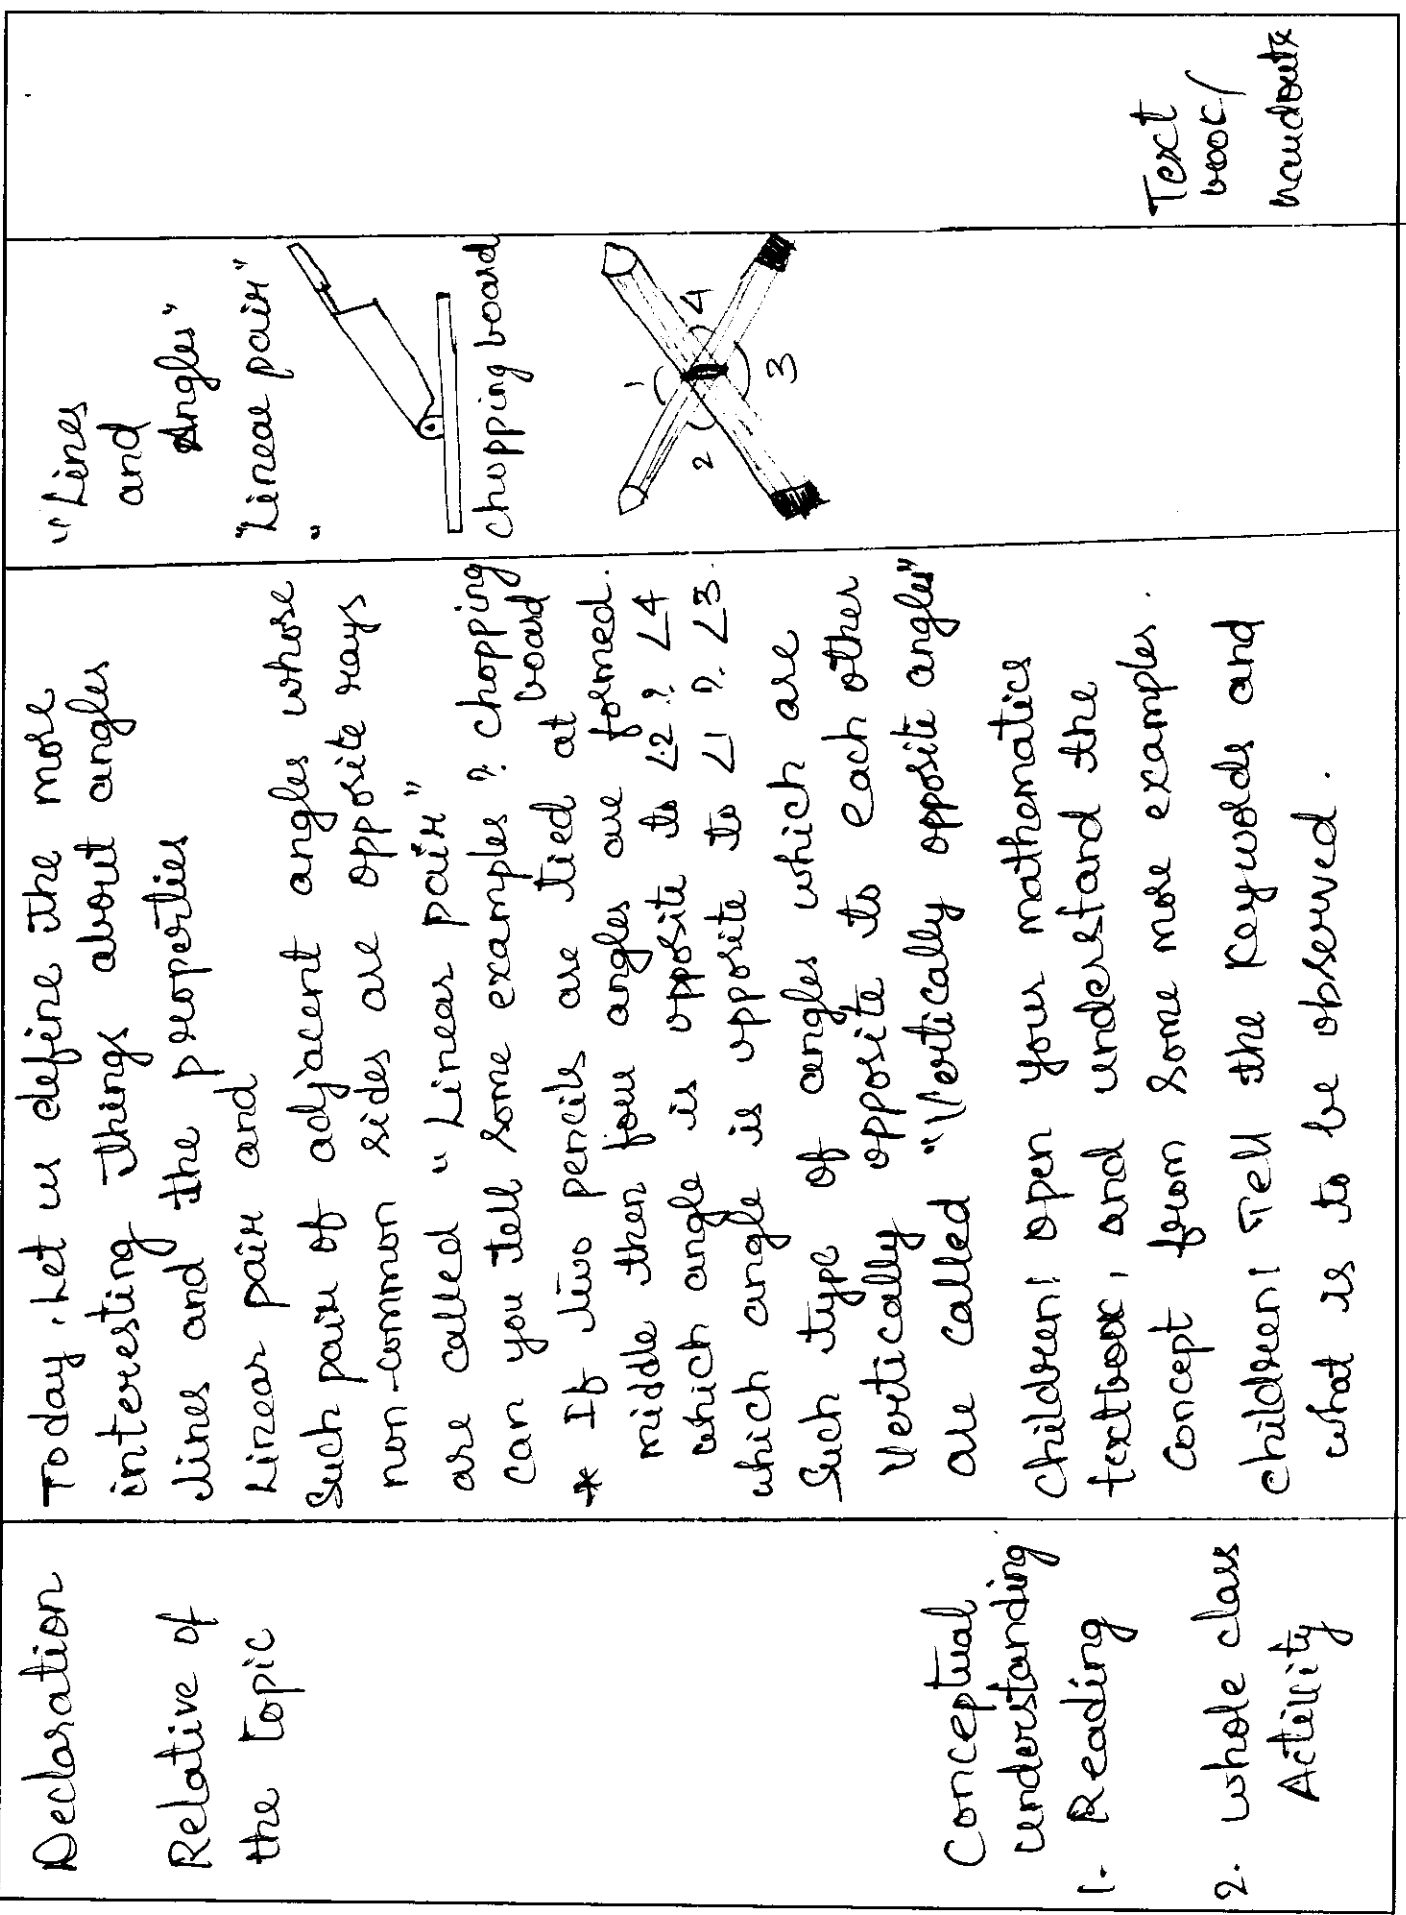 Declaration
Relative of
the topic
Conceptual
understanding
1. Reading
2. whole class
Activity
Today, Let us define the more
interesting things about angles
lines and the properties
Linear pair and
Such pair of adjacent angles whose
non-common sides are opposite rays
are called "Linear pair"
Can you tell some examples ? chopping
board
* If two pencils are tied at
middle then four angles are formed.
which angle is opposite to ∠2 ? ∠4
which angle is opposite to ∠1 ? ∠3.
Such type of angles which are
Vertically opposite to each other
are called "Vertically opposite angles"
Children! open your mathematics
textbook, and understand the
Concept from Some more examples.
Children! Tell the Keywords and
what is to be observed.
"Lines
and
Angles"
"Linear pair"
"
chopping board
1
2
4
3
Text
book/
handouts